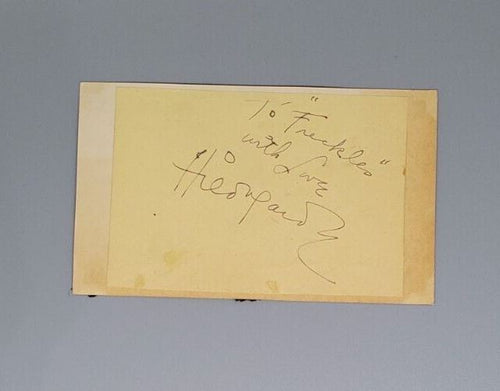 To "Freckles"
with Love
Hildegarde